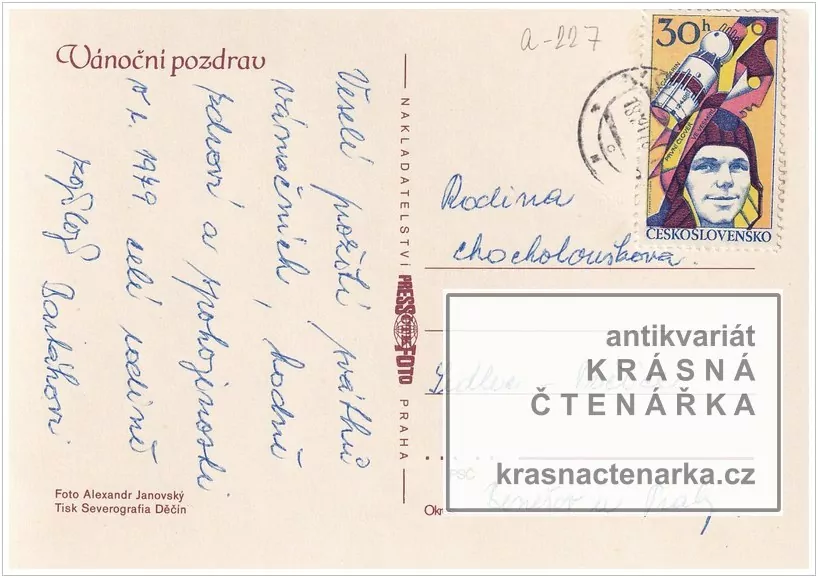 Vánoční pozdrav
a-227
30h
PRVNÍ ČLOVĚK
ČESKOSLOVENSKO
Veselé prožití svátků
vánočních, hodně
zdraví a spokojenosti
v r. 1979 celé rodině
přejí
Bartákovi
NAKLADATELSTVÍ
PRESSFOTO
PRAHA
Rodina
Chocholouškova
Benešov u Prahy
PSČ
Okr
antikvariát
KRÁSNÁ
ČTENÁŘKA
krasnactenarka.cz
Foto Alexandr Janovský
Tisk Severografia Děčín